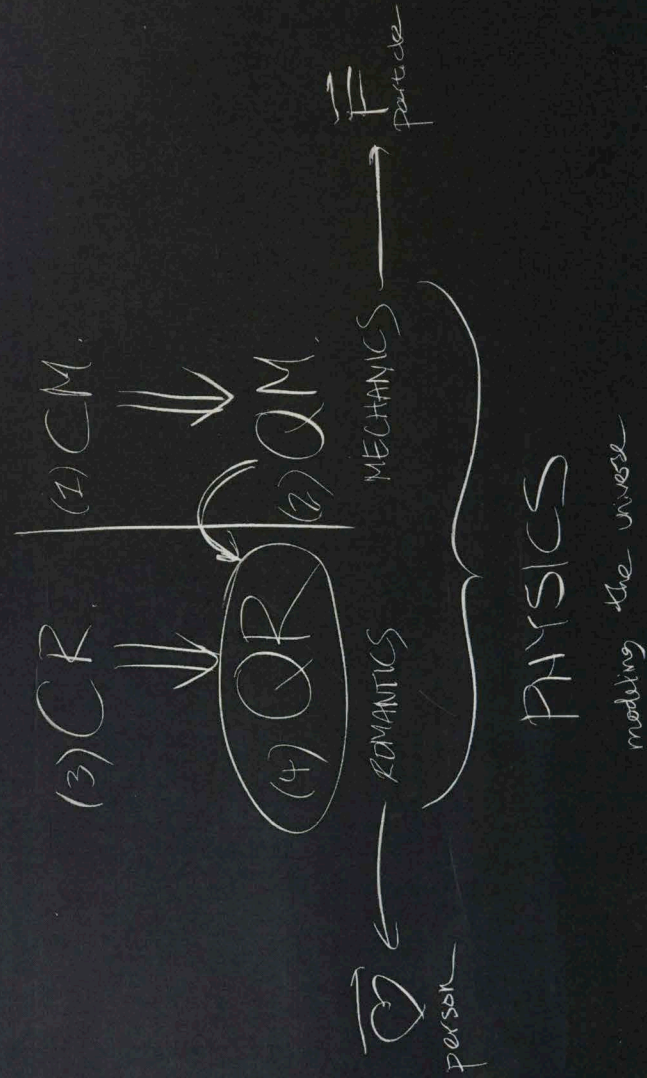 (3) CR. (1) CM.
(4) QR (2) QM.
ROMANTICS MECHANICS
♡ F
person particle
PHYSICS
modeling the universe